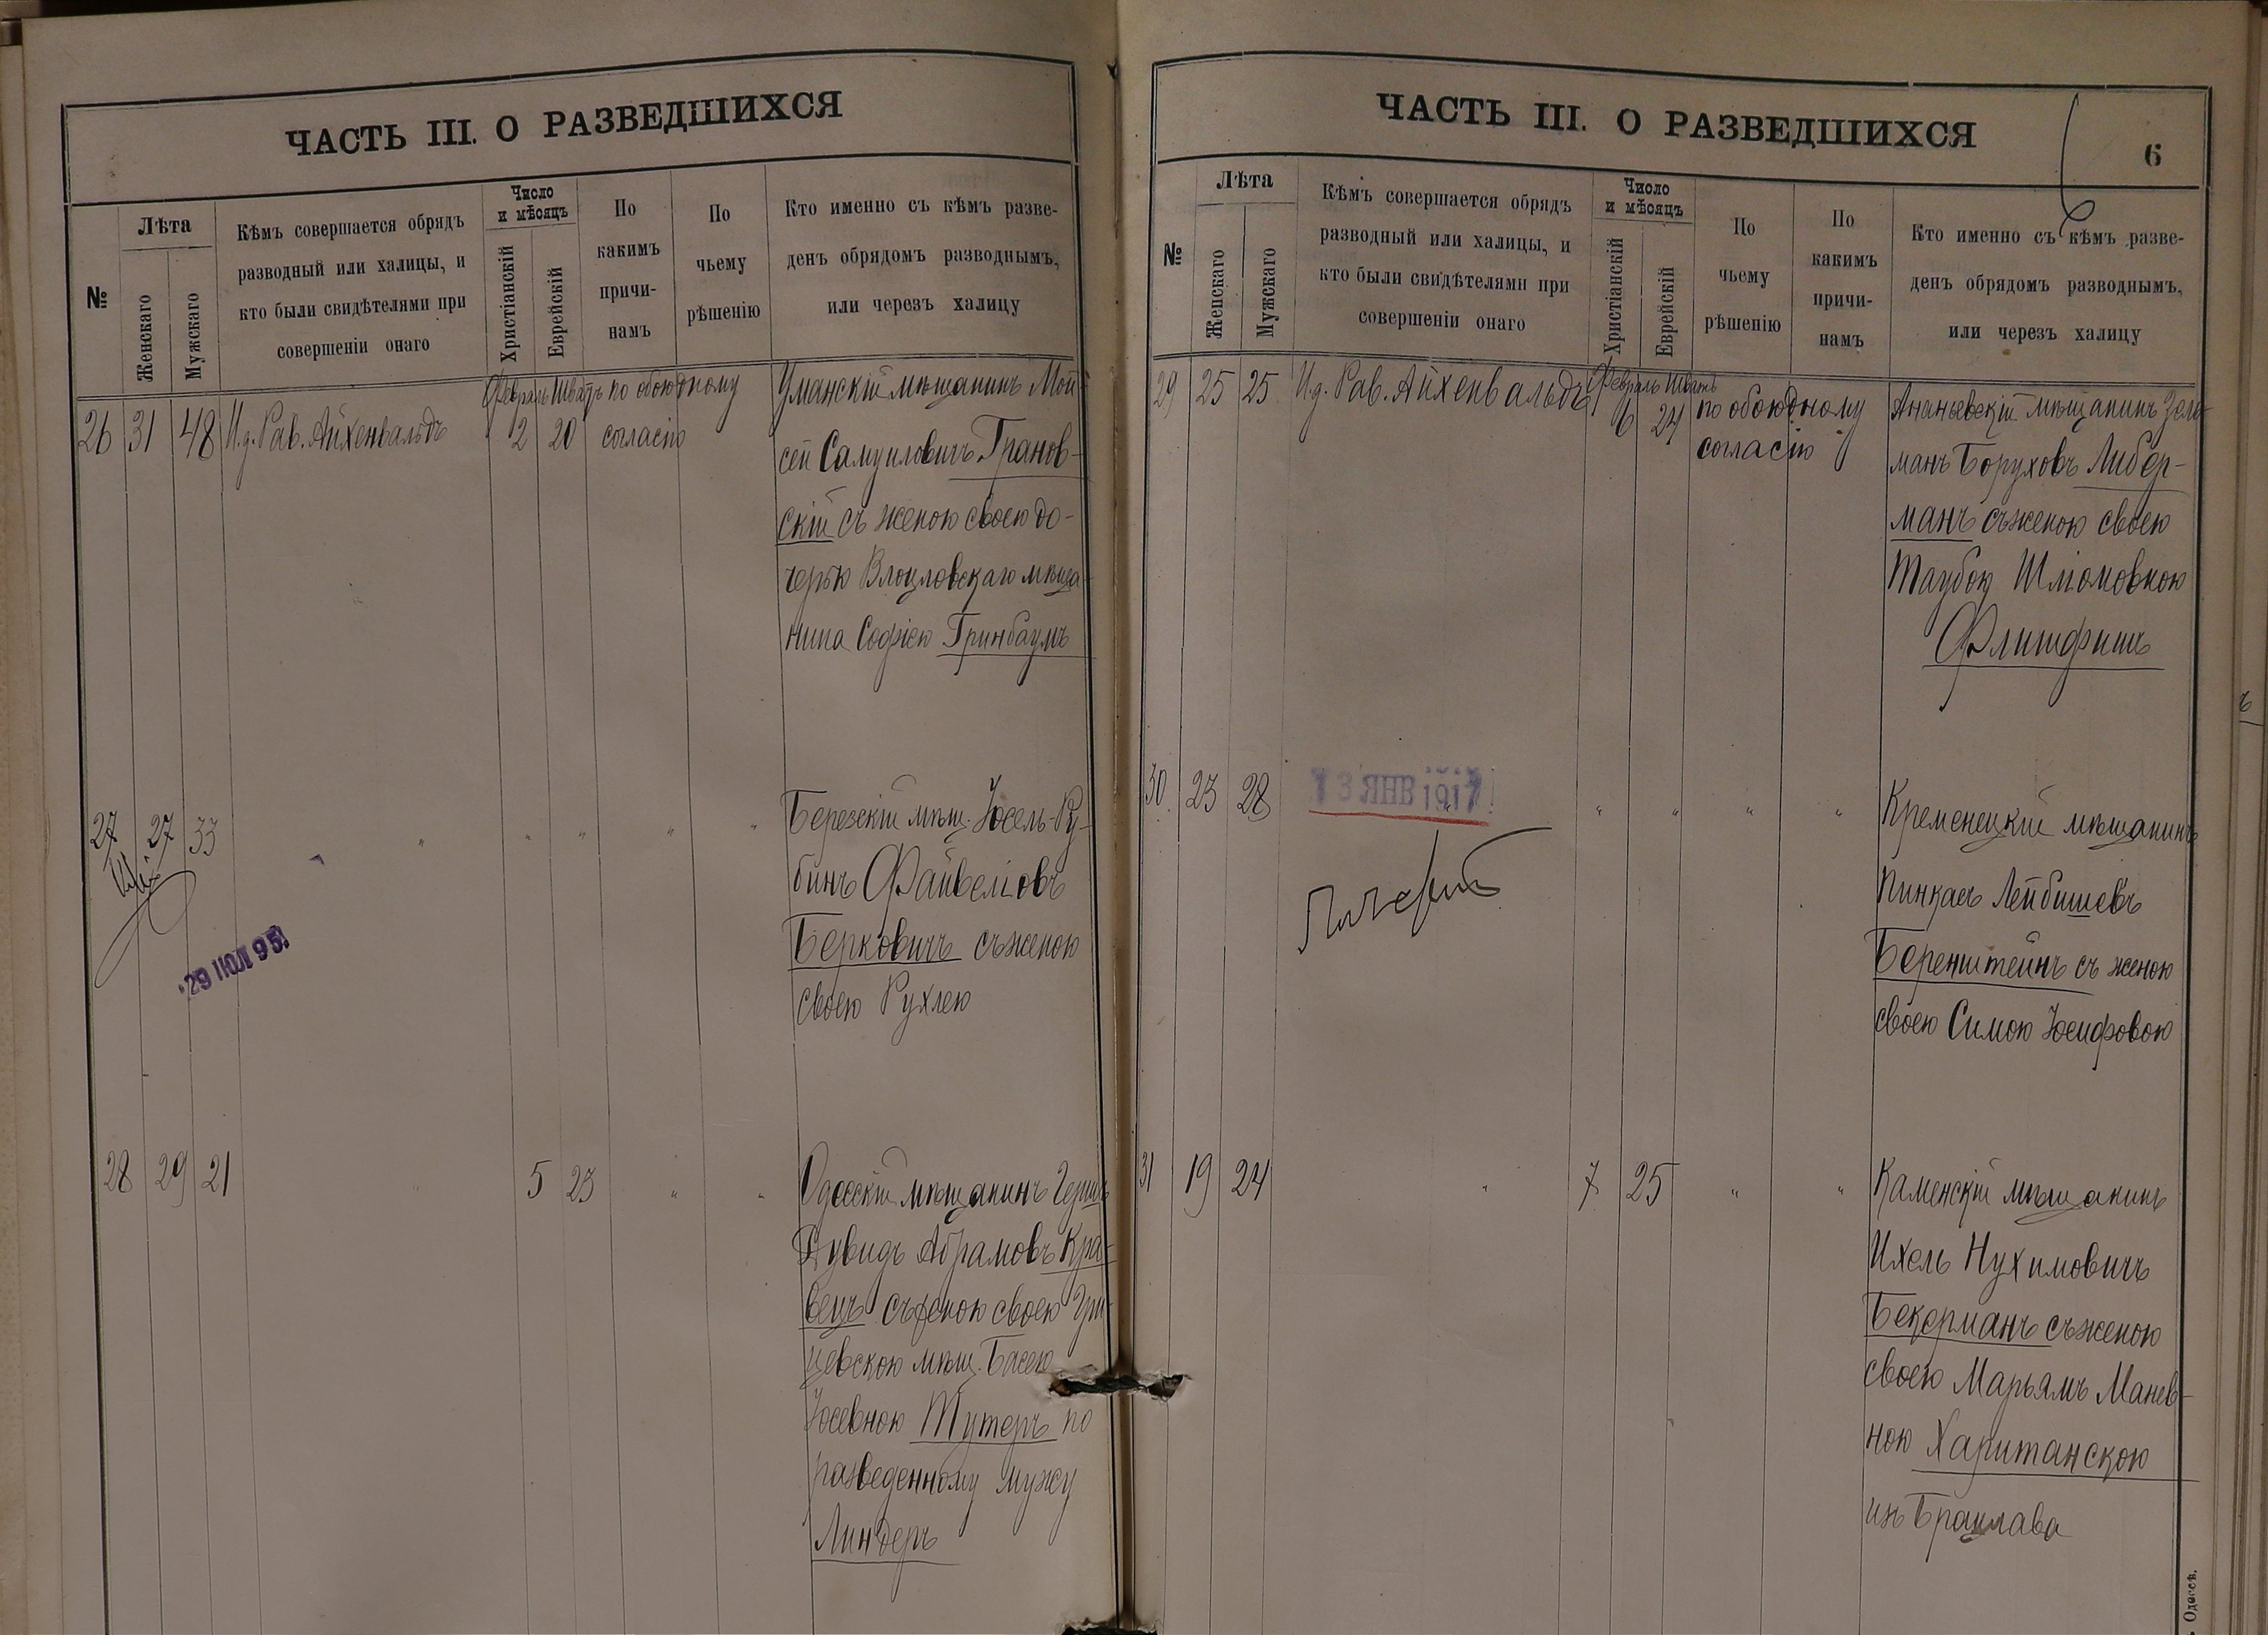 ЧАСТЬ III. О РАЗВЕДШИХСЯ
№
Лѣта
Женскаго
Мужскаго
Кѣмъ совершается обрядъ
разводный или халицы, и
кто были свидѣтелями при
совершеніи онаго
Число
и мѣсяцъ
Христіанскій
Еврейскій
По
какимъ
причи-
намъ
По
чьему
рѣшенію
Кто именно съ кѣмъ разве-
денъ обрядомъ разводнымъ,
или черезъ халицу
Февраль Шватъ по обоюдному
26 31 48 И.д. Рав. Айхенвальдъ 2 20 согласію
Уманскій мѣщанинъ Мой
сей Самуиловичъ Гранов-
скій съ женою своею до-
черью Влоцловскаго мѣща-
нина Софіею Гринбаумъ
27 27 33 " " " " "
29 ИЮЛ 95
Березскій мѣщ. Іосель-Ру-
бинъ Файвеліовъ
Берковичъ съ женою
своею Рухлею
28 29 21 " 5 23 " "
Одесскій мѣщанинъ Гершъ
Дувидъ Абрамовъ Кра-
вецъ съ женою своею
мѣщ. Басею
Іосевною Тутеръ по
разведенному мужу
Линдеръ
ЧАСТЬ III. О РАЗВЕДШИХСЯ
6
№
Лѣта
Женскаго
Мужскаго
Кѣмъ совершается обрядъ
разводный или халицы, и
кто были свидѣтелями при
совершеніи онаго
Число
и мѣсяцъ
Христіанскій
Еврейскій
По
чьему
рѣшенію
По
какимъ
причи-
намъ
Кто именно съ кѣмъ разве-
денъ обрядомъ разводнымъ,
или черезъ халицу
Февраль Шватъ
29 25 25 И.д. Рав. Айхенвальдъ 6 24 по обоюдному
согласію
Ананьевскій мѣщанинъ Зель
манъ Боруховъ Либер-
манъ съ женою своею
Таубою Шліомовною
Флишфишъ
30 23 28 " " " " "
13 ЯНВ 1917
Кременецкій мѣщанинъ
Пинкасъ Лейбишевъ
Беренштейнъ съ женою
своею Симою Іосифовою
31 19 24 " 7 25 " "
Каменскій мѣщанинъ
Ихель Нухимовичъ
Бекерманъ съ женою
своею Марьямъ Манев-
ною Хаританскою
изъ Брацлава
Одессѣ.